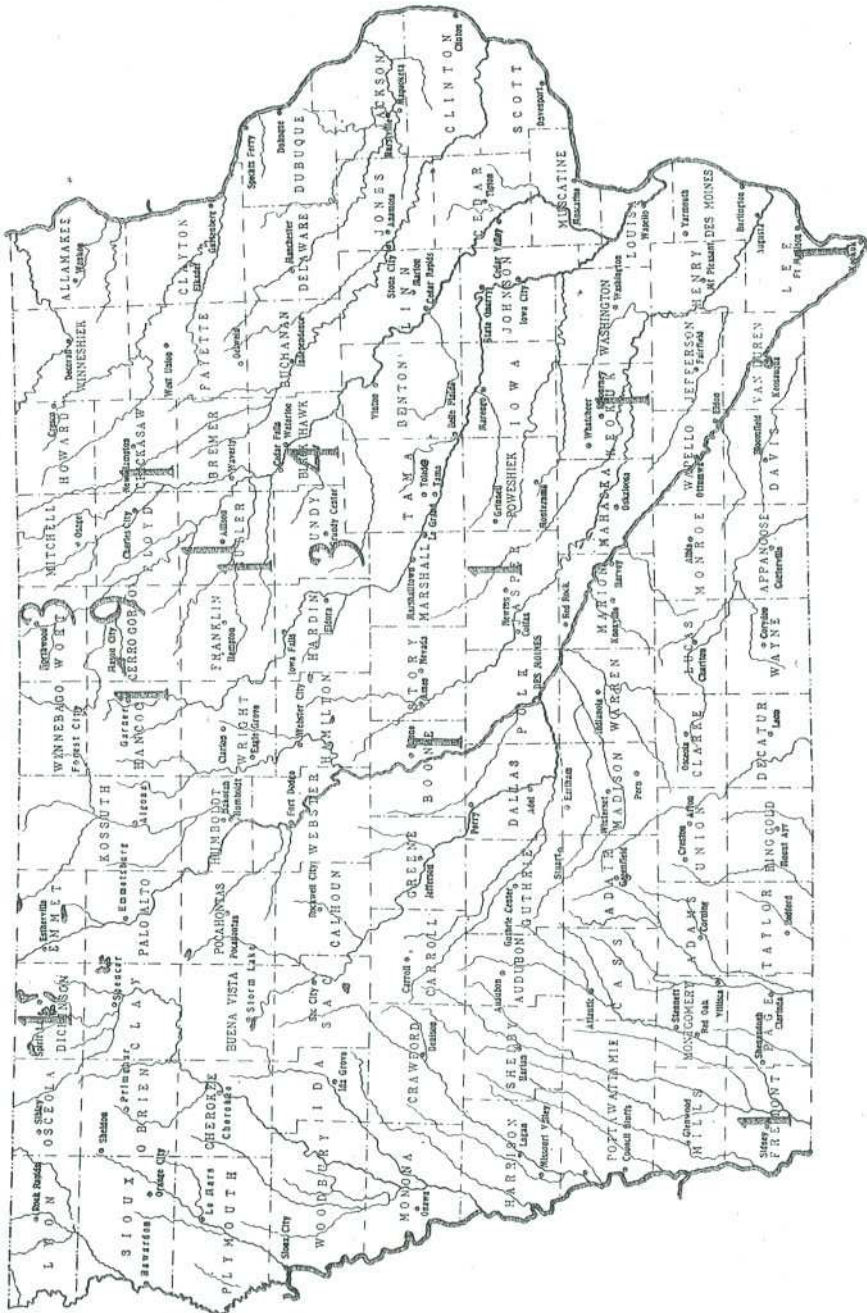 LYON
Rock Rapids
OSCEOLA
Sibley
DICKINSON
Spirit L
1
EMMET
Estherville
WINNEBAGO
Forest City
WORT
Northwood
3
MITCHELL
Osage
HOWARD
Cresco
WINNESHIEK
Decorah
ALLAMAKEE
Waukon
SIOUX
Orange City
Hawarden
OBRIEN
Sheldon
Primghar
CLAY
Spencer
PALO ALTO
Emmetsburg
KOSSUTH
Algona
HANCOC
Garner
1
CERROGORDO
Mason City
9
FLOYD
Charles City
CHICKASAW
New Hampton
1
FAYETTE
West Union
Oelwein
CLAYTON
Elkader
Guttenberg
PLYMOUTH
Le Mars
CHEROKEE
Cherokee
BUENA VISTA
Storm Lake
POCAHONTAS
Pocahontas
HUMBOLDT
Dakotah
Humboldt
WRIGHT
Clarion
Eagle Grove
FRANKLIN
Hampton
BUTLER
Allison
1
1
BREMER
Waverly
WOODBURY
Sioux City
IDA
Ida Grove
SAC
Sac City
CALHOUN
Rockwell City
WEBSTER
Fort Dodge
HAMILTON
Webster City
HARDIN
Iowa Falls
Eldora
GRUNDY
Grundy Center
3
BLACK HAWK
Cedar Falls
Waterloo
4
BUCHANAN
Independence
DELAWARE
Manchester
DUBUQUE
Dubuque
Spechts Ferry
MONONA
Onawa
CRAWFORD
Denison
CARROLL
Carroll
GREENE
Jefferson
BOONE
Boone
1
STORY
Ames
Nevada
MARSHALL
Marshalltown
Le Grand
TAMA
Toledo
Tama
BENTON
Vinton
Belle Plaine
LINN
Marion
Cedar Rapids
JONES
Stone City
Anamosa
JACKSON
Maquoketa
HARRISON
Logan
Missouri Valley
SHELBY
Harlan
AUDUBON
Audubon
GUTHRIE
Guthrie Center
Stuart
DALLAS
Perry
Adel
POLK
DES MOINES
JASPER
Newton
Colfax
1
POWESHIEK
Grinnell
Montezuma
IOWA
Marengo
JOHNSON
State Quarry
Iowa City
CEDAR
Cedar Valley
Tipton
CLINTON
Clinton
SCOTT
Davenport
POTTAWATTAMIE
Council Bluffs
CASS
Atlantic
ADAIR
Greenfield
MADISON
Earlham
Winterset
Peru
WARREN
Indianola
MARION
Red Rock
Knoxville
Harvey
MAHASKA
Oskaloosa
KEOKUK
Whatcheer
Sigourney
1
WASHINGTON
Washington
LOUISA
Wapello
MUSCATINE
Muscatine
MILLS
Glenwood
MONTGOMERY
Stennett
Red Oak
Villisca
ADAMS
Corning
UNION
Creston
Afton
CLARKE
Osceola
LUCAS
Chariton
MONROE
Albia
WAPELLO
Ottumwa
Eldon
JEFFERSON
Fairfield
HENRY
Mt Pleasant
DES MOINES
Yarmouth
Burlington
Augusta
FREMONT
Sidney
1
PAGE
Shenandoah
Clarinda
TAYLOR
Bedford
RINGGOLD
Mount Ayr
DECATUR
Leon
WAYNE
Corydon
APPANOOSE
Centerville
DAVIS
Bloomfield
VAN BUREN
Keosauqua
LEE
Ft Madison
Keokuk
1